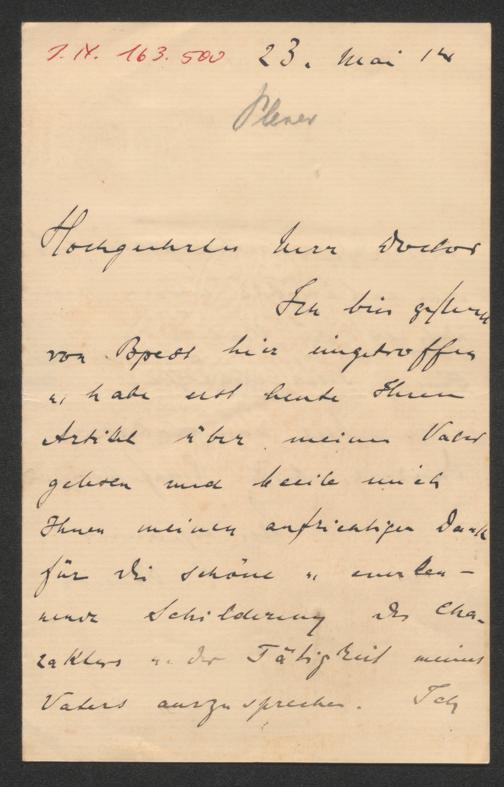 I.N. 163.500 23. Mai 14
Plener
Hochgeehrter Herr Doctor
Ich bin gestern
von Bpest hier eingetroffen
u, habe erst heute Ihren
Artikel über meinen Vater
gelesen und beeile mich
Ihnen meinen aufrichtigen Dank
für die schöne u anerken-
nende Schilderung des Cha-
rakters u. der Tätigkeit meines
Vaters auszusprechen. Ich